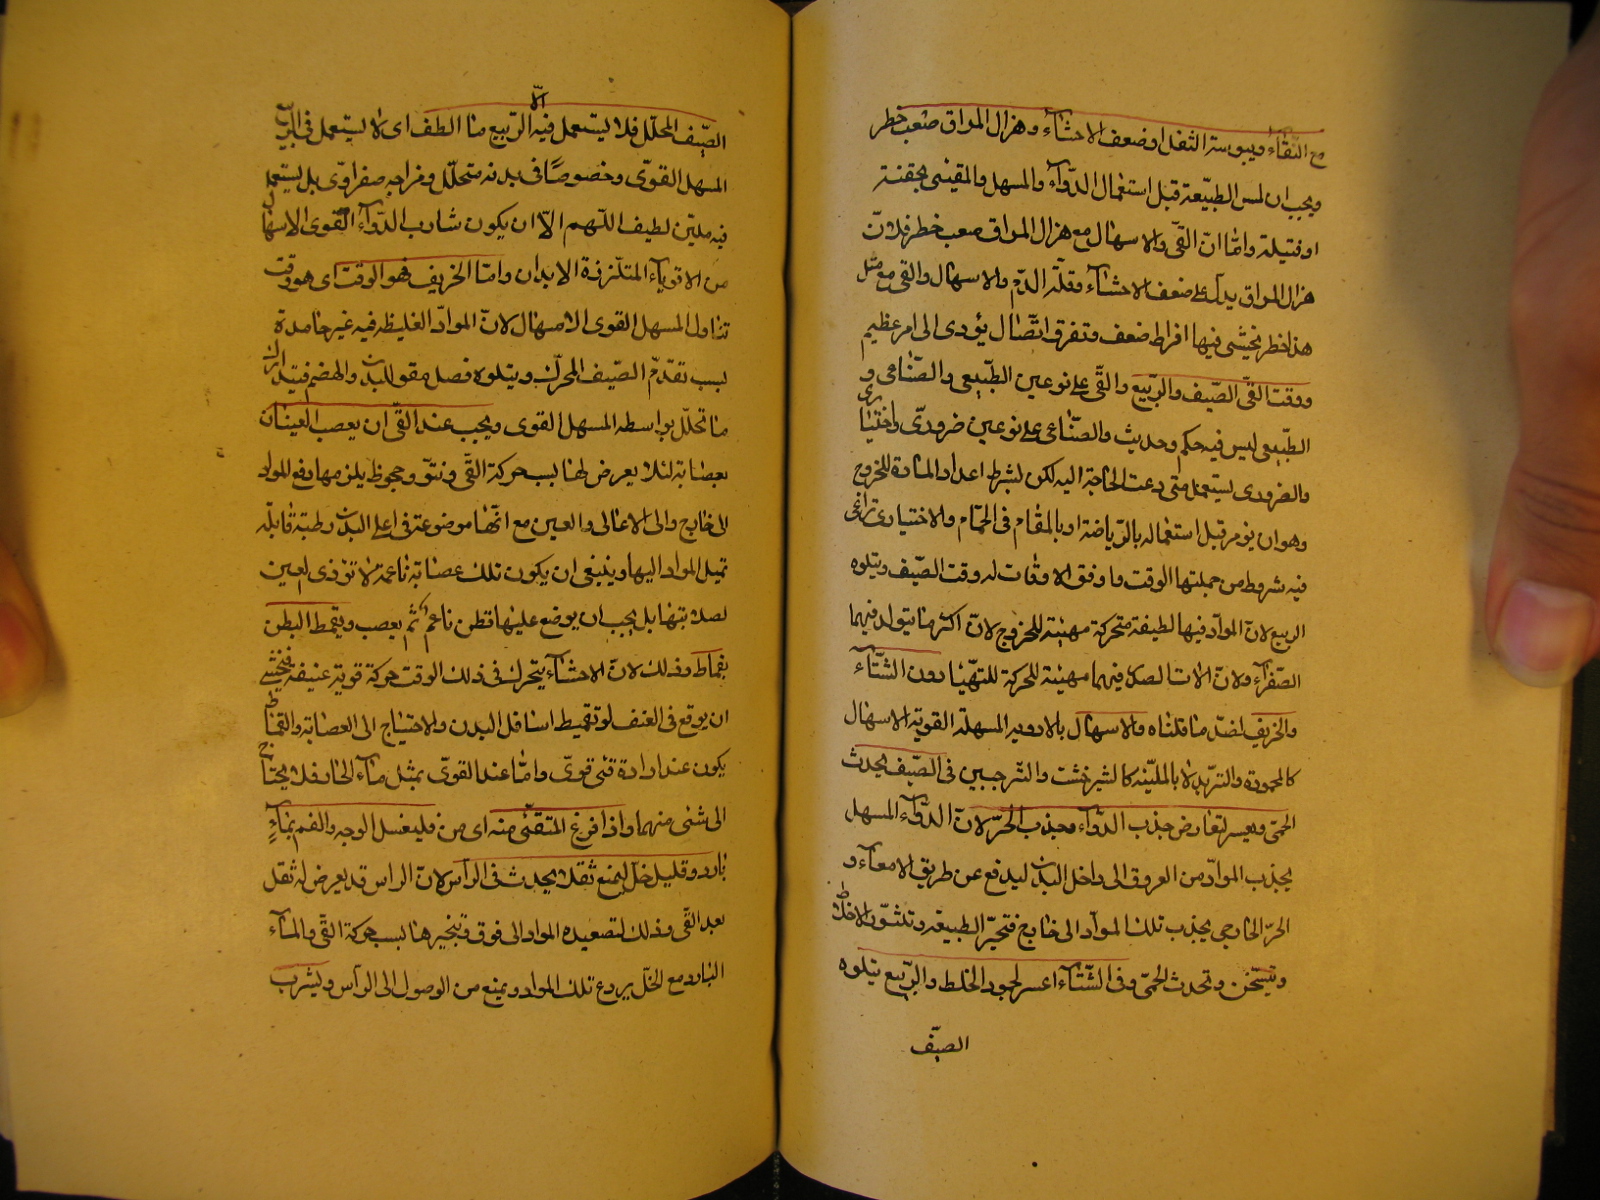 مع النقآء ويبوسة الثفل او ضعف الاحشآء وهزال المراق صعب خطر
ويجب ان تلين الطبيعة قبل استعمال الدوآء والمسهل والمقيئ بحقنة
او فتيلة وامّا انّ القئ والاسهال مع هزال المراق صعب خطر فلانّ
هزال المراق يدل على ضعف الاحشآء وقلة الدم والاسهال والقئ مع مثل
هذا خطر يخشى فيها افراط ضعف وتفرق اتصال يؤدى الى امر عظيم
ووقت القئ الصيف والربيع والقئ على نوعين الطبيعى والصناعى و
الطبيعى ليس فيه حكم وحديث والصناعى على نوعين ضرورى واختيارى
والضرورى يستعمل متى دعت الحاجة اليه لكن بشرط اعداد المادة للخروج
وهو ان يؤمر قبل استعماله بالرياضة او بالمقام فى الحمّام والاختيارى تراعى
فيه شروط من جملتها الوقت واوفق الاوقات له وقت الصيف ويتلوه
الربيع لانّ الموادّ فيها لطيفة متحركة مهيئة للخروج لانّ اكثر ما يتولد فيهما
الصفرآء ولانّ الات الصدر فيهما مهيئة للحركة للتهيّا دون الشتآء
والخريف لضدّ ما قلناه والاسهال بالادوية المسهلة القوية الاسهال
كالمحمودة والتربد لا بالملينة كالشيرخشت والترنجبين فى الصيف يحدث
الحمى ويعسر لتعارض جذب الدوآء وجذب الحرّ لانّ الدوآء المسهل
يجذب الموادّ من العروق الى داخل البدن ليدفع عن طريق الامعآء و
الحرّ الخارجى يجذب تلك الموادّ الى خارج فتتحيّر الطبيعة وتتشوّر الاخلاط
وتتسخن وتحدث الحمى وفى الشتآء اعسر لجمود الخلط والربيع يتلوه
الصيف
الصيف المحلّل فلا يستعمل فيه الّا الربيع ما الطف اى لا يستعمل فى الربيع
المسهل القوى وخصوصًا فى بدنه متحلّل ومزاجه صفراوى بل يستعمل
فيه ملين لطيف اللهم الّا ان يكون شارب الدوآء القوى الاسهال
من الاقويآء المتلززة الابدان وامّا الخريف فهو الوقت اى هو وقت
تناول المسهل القوى الاسهال لانّ الموادّ الغليظة فيه غير جامدة
بسبب تقدّم الصيف المحرّك ويتلوه فصل مقو للبدن والهضم فيتدارك
ما تحلّل بواسطة المسهل القوى ويجب عند القئ ان يعصب العينان
بعصابة لئلا يعرض لها بسبب حركة القئ ونتؤ وجحوظ يلزمها دفع المواد
الى خارج والى الاعالى والعين مع انّها موضوعة فى اعلى البدن رطبة قابلة
تميل المواد اليها وينبغى ان يكون تلك عصابة ناعمة لا تؤذى العين
لصلابتها بل يجب ان يوضع عليها قطن ناعم ثم يعصب ويقمط البطن
بقماط وذلك لانّ الاحشآء يتحرك فى ذلك الوقت حركة قوية عنيفة فيخشى
ان يوقع فى العنف لو تقميط اسافل البدن والاحتياج الى العصابة والقماط
يكون عند ارادة قئ قوى وامّا عند القوى بمثل مآء الحار فلا يحتاج
الى شئ منهما واذا فرغ المتقئ منه اى من فليغسل الوجه والفم بمآء
بارد وقليل خلّ ليمنع ثقلا يحدث فى الرأس لانّ الراس قد يعرض له ثقل
بعد القئ وذلك لتصعيده المواد الى فوق وتبخيرها بسبب حركة القئ والمآء
البارد مع الخلّ يردع تلك المواد ويمنع من الوصول الى الرأس ويشرب